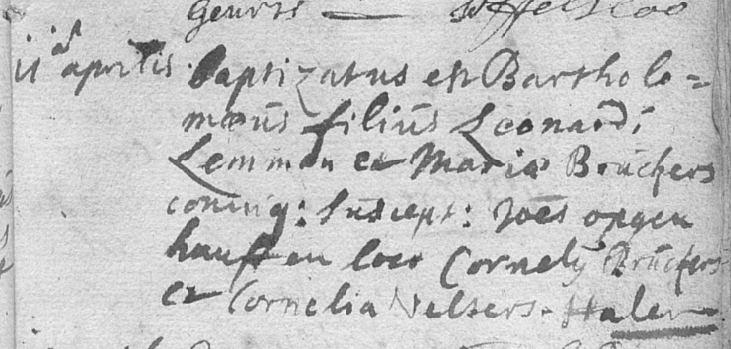 Geurts
11 a aprilis Baptizatus est Bartholo=
mæus filius Leonardi
Lemmen et Mariæ Brückers
coniug: Suscept: Joes opgen
hauff en loco Cornely Brückers
et Cornelia Velsers. Halen